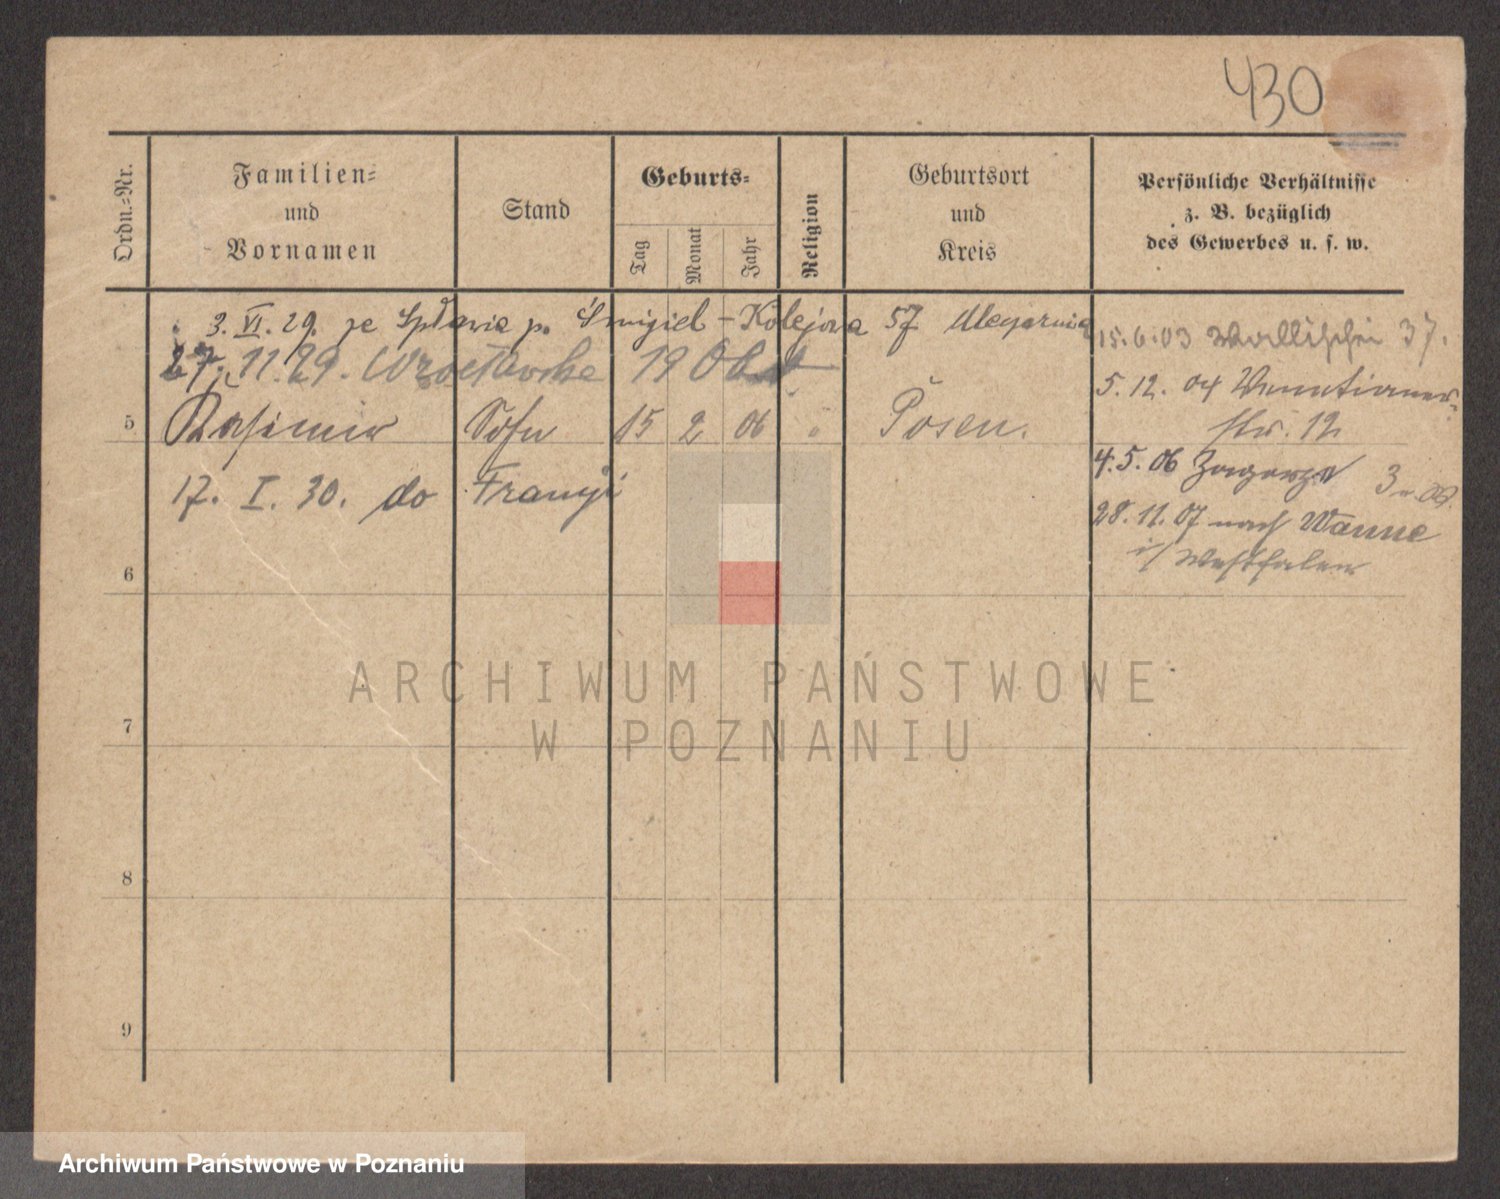 430
Ordn.-Nr.
Familien-
und
Vornamen
Stand
Geburts-
Tag
Monat
Jahr
Religion
Geburtsort
und
Kreis
Persönliche Verhältnisse
z. B. bezüglich
des Gewerbes u. s. w.
3. VI. 29. ze Spławia p. Śmigiel - Kolejowa 57
27. 11. 29. Wrocławska 19
5 Kasimir Sohn 15 2 06 " Posen.
17. I. 30. do Francji
15.6.03 Wallischei 37.
5.12.04 Venetianer-
str. 12
4.5.06 Zagorze 3
28.11.07 nach Wanne
i/ Westfalen
6
7
8
9
ARCHIWUM PAŃSTWOWE
W POZNANIU
Archiwum Państwowe w Poznaniu